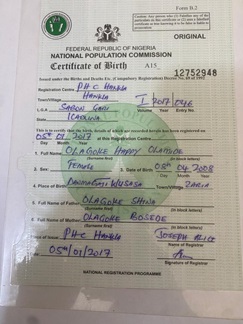 Form B.2
ORIGINAL
FEDERAL REPUBLIC OF NIGERIA
NATIONAL POPULATION COMMISSION
Certificate of Birth A15 12752948
Issued under the Births and Deaths Etc. (Compulsory Registration) Decree No. 69 of 1992
Registration Centre PHC HANKLA
Town/Village HANKLA I 2017 046
L.G.A. SABON GARI Volume Year Entry No.
State
This is to certify that the birth, details of which are recorded herein has been registered on
05th 01 2017 at this Registration Centre
Day Month Year
1. Full Name OLAGOKE HAPPY
(Surname first) (In block letters)
2. Sex FEMALE 3. Date of Birth 05th 04 2008
Day Month Year
4. Place of Birth WUSASA ZARIA
Town/Village
5. Full Name of Father OLAGOKE SHINA
(Surname first) (In block letters)
6. Full Name of Mother OLAGOKE BOSEDE
(Surname first) (In block letters)
PHC HANKLA JOSEPH ALICE
Name of Registrar
05th/01/2017
Date
Signature of Registrar
NATIONAL REGISTRATION PROGRAMME